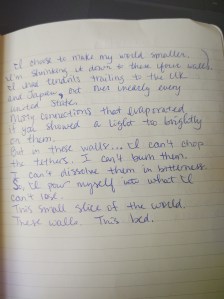 I chose to make my world smaller.
I'm shrinking it down to these four walls.
I have tendrils trailing to the UK
and Japan, and over nearly every
united state.
Misty connections that evaporated
if you showed a light too brightly
on them.
But in these walls... I can't chop
the tethers. I can't burn them.
I can't dissolve them in bitterness.
So, I'll pour myself into what I
can't lose.
This small slice of the world.
These walls. This bed.